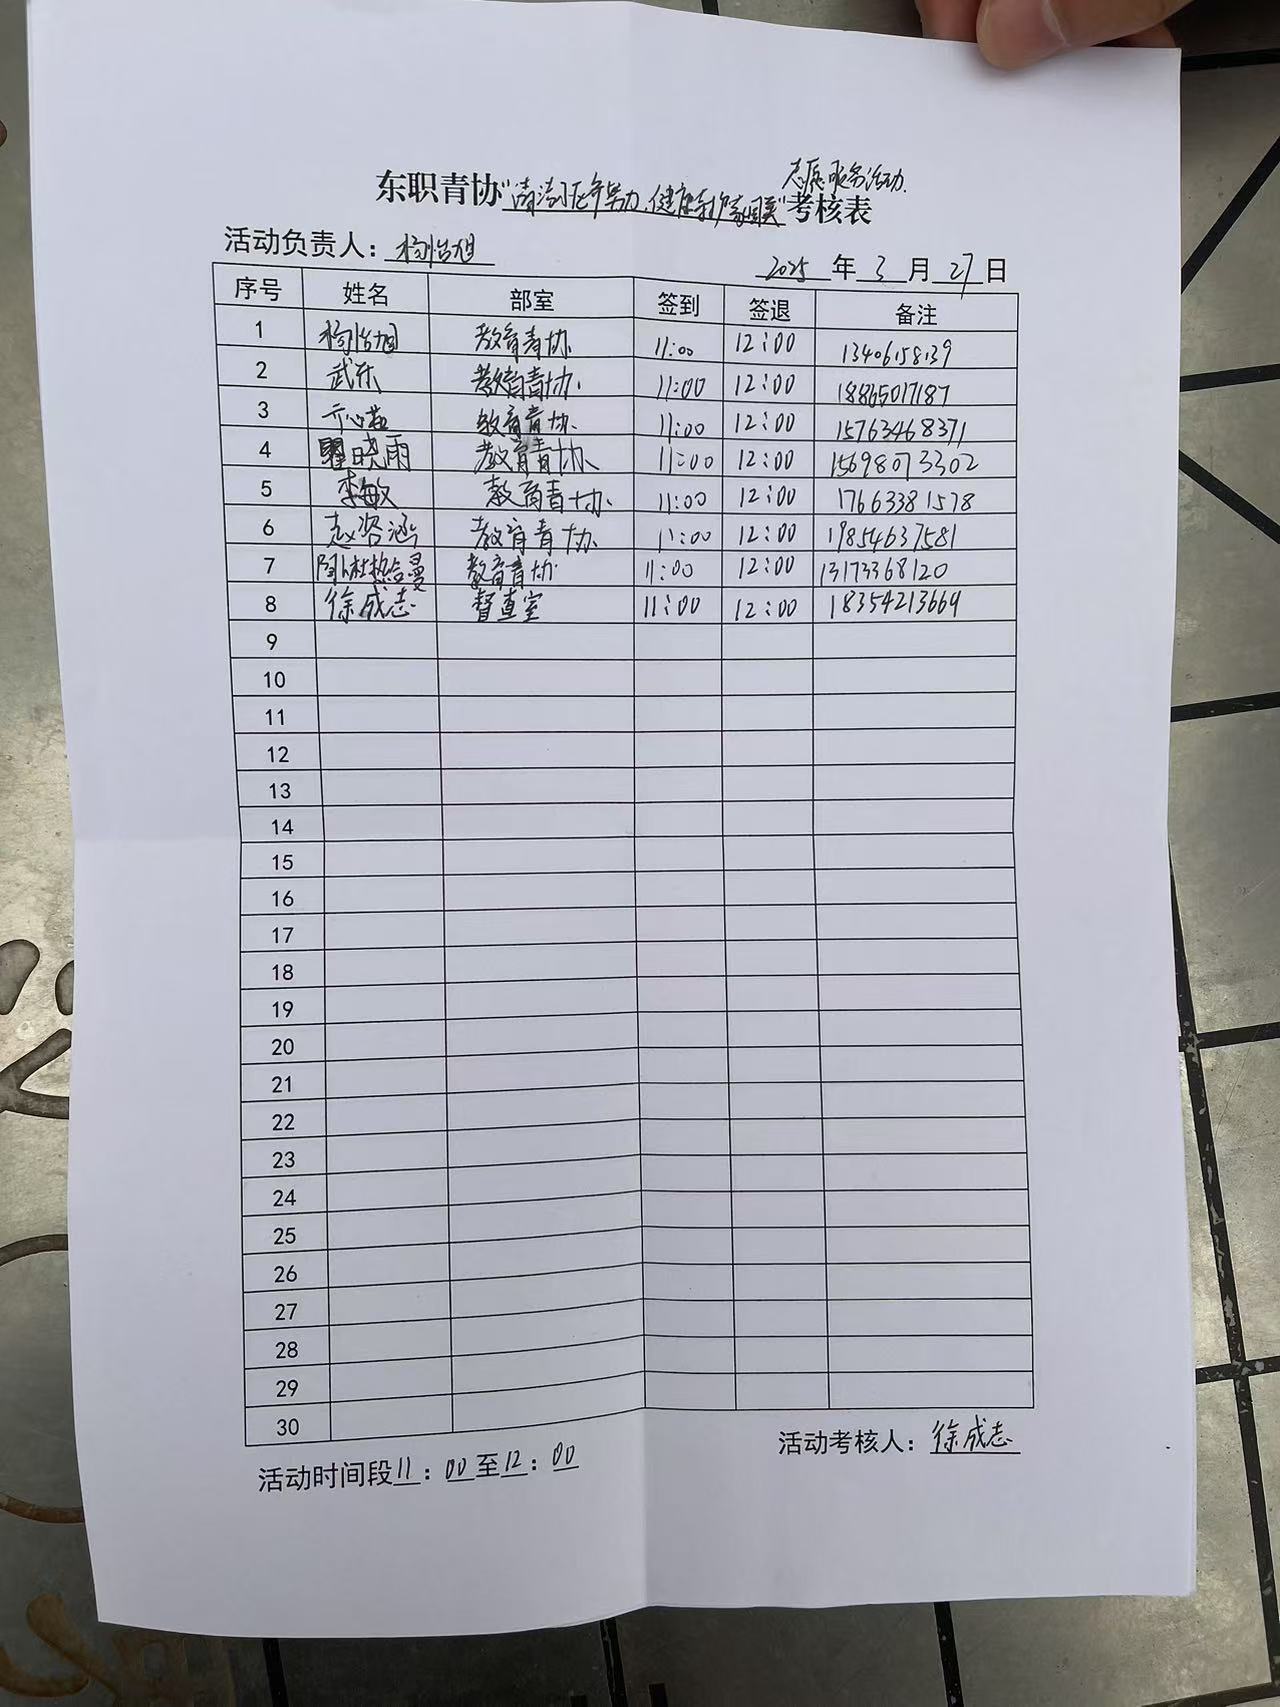 志愿服务活动
东职青协"清洁 努力,健康 家园美"考核表
活动负责人：杨怡旭
2025 年 3 月 27 日
序号 姓名 部室 签到 签退 备注
1 杨怡旭 教育青协 11:00 12:00
2 武乐 教育青协 11:00 12:00 18865017187
3 亓心茹 教育青协 11:00 12:00 15763468371
4 瞿晓雨 教育青协 11:00 12:00 15698073302
5 李敏 教育青协 11:00 12:00 17663381578
6 赵容涵 教育青协 11:00 12:00 19854637581
7 教育青协 11:00 12:00 13173368120
8 徐成志 督查室 11:00 12:00 18354213669
9
10
11
12
13
14
15
16
17
18
19
20
21
22
23
24
25
26
27
28
29
30
活动考核人：徐成志
活动时间段11：00至12：00